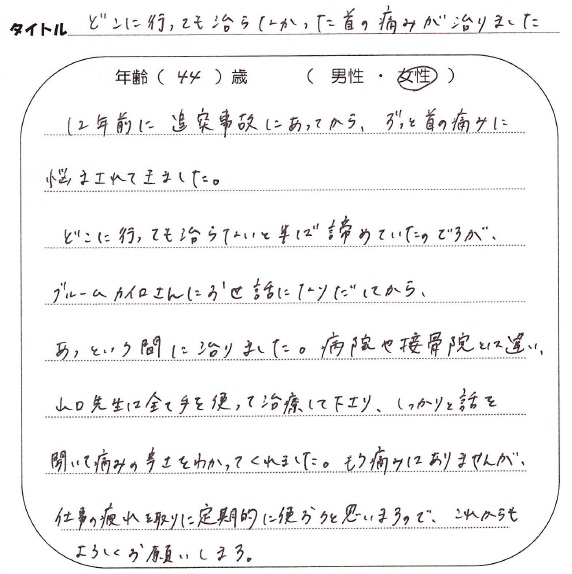 タイトル どこに行っても治らなかった首の痛みが治りました
年齢 ( 44 ) 歳 ( 男性 ・ 女性 )
12年前に追突事故にあってから、ずっと首の痛みに
悩まされて来ました。
どこに行っても治らないと半ば諦めていたのですが、
ブルームカイロさんにお世話になりだしてから、
あっという間に治りました。病院や接骨院とは違い、
山口先生は全て手を使って治療して下さり、しっかりと話を
聞いて痛みの辛さをわかってくれました。もう痛みはありませんが、
仕事の疲れを取りに定期的に使おうと思いますので、これからも
よろしくお願いします。